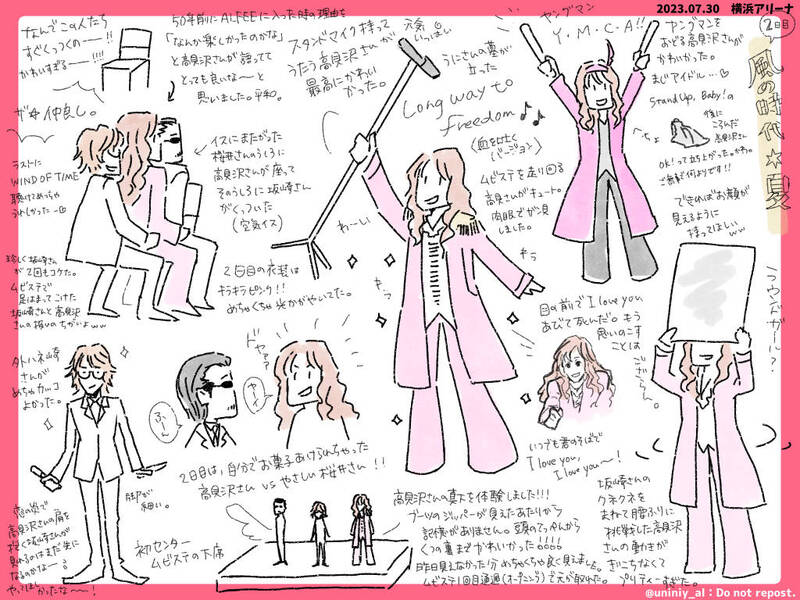 2023.07.30 横浜アリーナ
2日目
風の時代☆夏
なんでこの人たち
すぐくっつくの〜!!
かわいすぎる〜!!!!
ザ☆仲良し。
50年前にALFEEに入った時の理由を
「なんか楽しかったのかな」
と高見沢さんが語ってて
とっても良いな〜と
思いました。平和。
スタンドマイク持って
うたう高見沢さんが
最高にかわい
かった。
元気
いっぱい
うにさんの墓が
立った
Long way to
freedom
ヤングマン
Y.M.C.A!!
ヤングマンを
おどる高見沢さんが
かわいかった。
まじアイドル…♡
Stand Up, Baby!の
後に
ころんだ
高見沢さん
OK!って立ち上がった。かわ。
ご無事で何よりです!!
できればお顔が
見えるように
持ってほしいww
ラウンドガール?
イスにまたがった
桜井さんのうしろに
高見沢さんが座って
そのうしろに坂崎さん
がくっついた
(空気イス)
ラストに
WIND OF TIME
聴けてめっちゃ
うれしかった
珍しく坂崎さん
が2回もコケた。
ムビステで
足はまってこけた
2日目の衣装は
キラキラピンク!!
めちゃくちゃ光かがやいてた。
わーい
キラ
キラ
ムビステを走り回る
高見沢さんがキュート。
肉眼でガン見
しました。
目の前でI love you,
あびて死んだ。もう
思いのこす
ことは
ございません。
いつも君のそばで
I love you,
I love you〜!
タトハネ崎
さんが
めちゃカッコ
よかった。
脚が
細い。
ドヤァァ
ふーん
2日目は、自分でお菓子あけられちゃった
高見沢さん vs やさしい桜井さん!!
初センター
ムビステの下席
高見沢さんの真下を体験しました!!!
ブーツのジッパーが見えたあたりから
記憶がありません。頭のてっぺんから
くつの裏まで かわいかった
昨日見えなかった分 めちゃくちゃ良く見ました。
ムビステ1回目通過(オープニング)で元が取れた。
坂崎さんの
クネクネを
まねて腰ふりに
挑戦した高見沢
さんの動きが
ぎこちなくて
プリティーすぎた。
@uniniy_al : Do not repost.